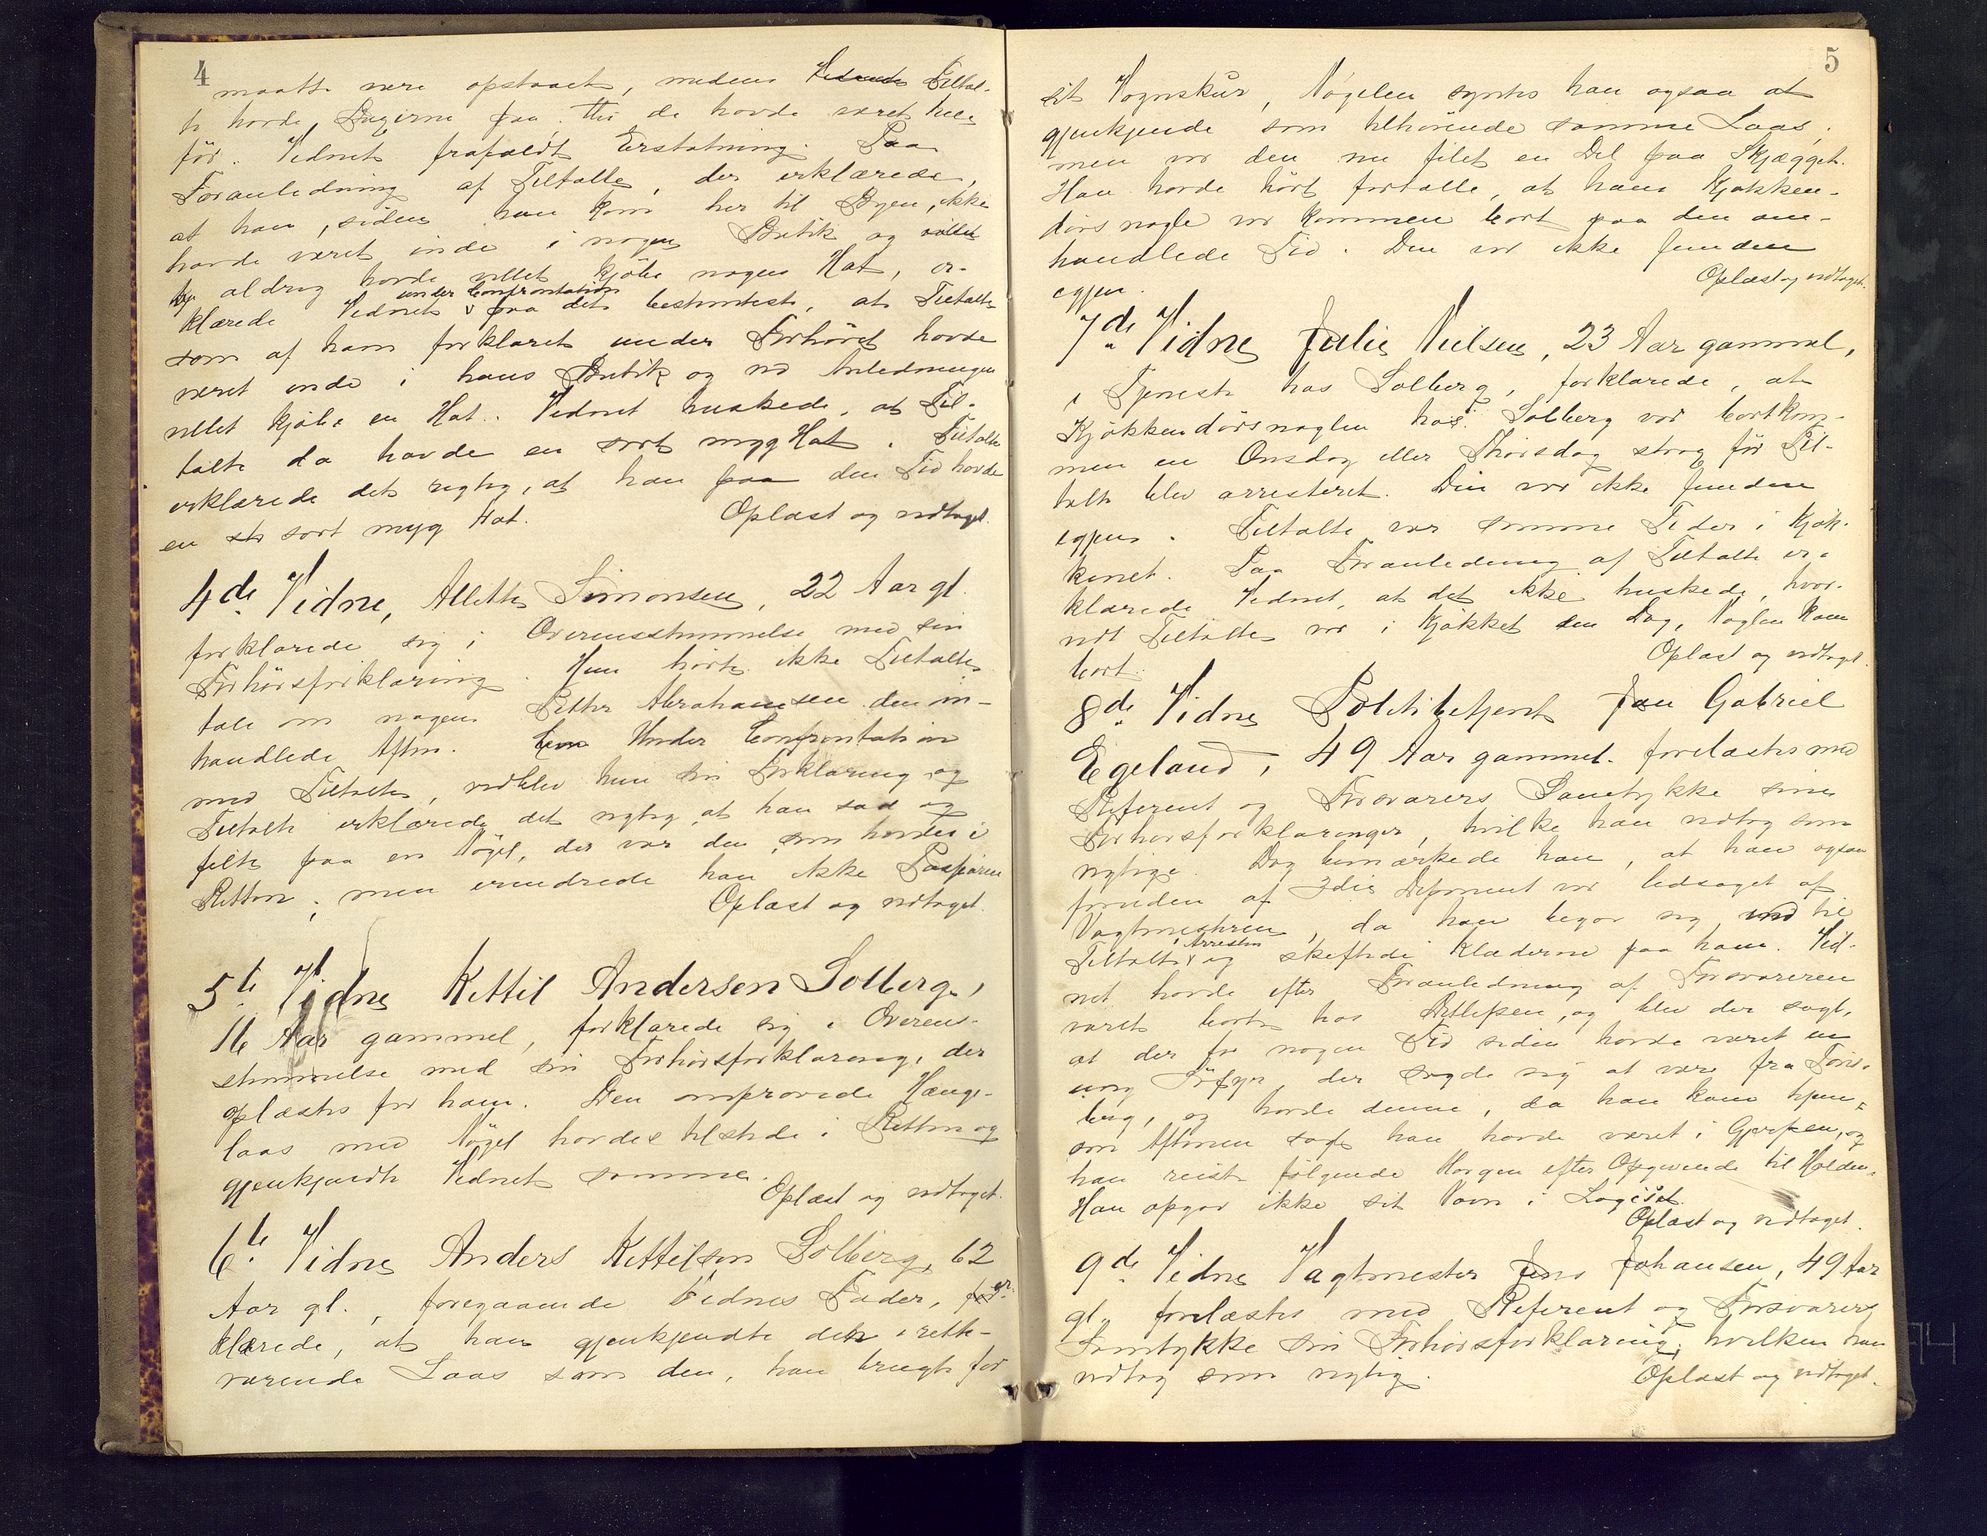 4
maatte være opstaaet, medens Vidnet Tiltal-
te havde Bugserne paa. Thi de havde været hele
før. Vidnet frafaldt Erstatning. Paa
Foranledning af Tiltalte, der erklærede,
at han, siden han kom her til Byen, ikke
havde været inde i nogen Butik og
aldrig havde villet kjøbe nogen Hat, er-
klærede Vidnet under Confrontation paa det bestemteste, at Tiltalte
som af ham forklaret under Forhøret havde
været inde i hans Butik og ved Anledningen
villet kjøbe en Hat. Vidnet huskede, at Til-
talte da havde en sort myg Hat. Tiltalte
erklærede det rigtig, at han paa den Tid havde
en sort myg Hat. Oplæst og vedtaget.
4de Vidne, Alette Simonsen, 22 Aar gl.
forklarede sig i Overensstemmelse med sin
Forhørsforklaring. Hun hørte ikke Tiltalte
tale om nogen Petter Abrahamsen den om-
handlede Aften. Under Confrontation
med Tiltalte, vedblev hun sin Forklaring og
Tiltalte erklærede det rigtig, at han sad og
filte paa en Nøgel, der var den, som havdes i
Retten; men erindrede han ikke
Oplæst og vedtaget.
5te Vidne Kettil Andersen Solberg,
16 Aar gammel, forklarede sig i Overens-
stemmelse med sin Forhørsforklaring, der
oplæstes for ham. Den omprovede Hænge-
laas med Nøgel havdes tilstede i Retten og
gjenkjendte Vidnet samme.
Oplæst og vedtaget.
6te Vidne Anders Kettilsen Solberg, 62
Aar gl., foregaaende Vidnes Fader, for-
klarede, at han gjenkjendte den i rette-
værende Laas som den, han brugte for
5
sit Vognskur, Nøgelen syntes han ogsaa at
gjenkjende som tilhørende samme Laas,
men var den nu filet en Del paa Skjægget.
Han havde hørt fortælle, at hans Kjøkken-
dørsnøgle var kommen bort paa den om-
handlede Tid. Den var ikke funden
igjen. Oplæst og vedtaget.
7de Vidne Julie Nielsen, 23 Aar gammel,
i Tjeneste hos Solberg, forklarede, at
Kjøkkendørsnøglen hos Solberg var bortkom-
men en Onsdag eller Thorsdag strax før Til-
talte blev arresteret. Den var ikke funden
igjen. Tiltalte var somme Tider i Kjøk-
kenet. Paa Foranledning af Tiltalte er-
klærede Vidnet, at det ikke huskede, hvor-
vidt Tiltalte var i Kjøkket den Dag, Nøglen kom
bort. Oplæst og vedtaget.
8de Vidne Politibetjent Jan Gabriel
Egeland, 49 Aar gammel. forelæstes med
Referent og Forsvarers Samtykke sine
Forhørsforklaringer, hvilke han vedtog som
rigtige. Dog bemærkede han, at han ogsaa
foruden af 3die Deponent var ledsaget af
Vagtmesteren, da han begav sig ind til
Tiltalte i Arresten og skiftede Klæderne paa ham. Vid-
net havde efter Foranledning af Forsvareren
været borte hos Detlefsen, og blev der sagt,
at der for nogen Tid siden havde været en
ung Søfyr, der sagde sig at være fra Tøns-
berg, og havde denne, da han kom hjem
om Aftenen sagt han havde været i Gjerpen, og
han reiste følgende Morgen efter Opgivende til Holden.
Han opgav ikke sit Navn i Logiset.
Oplæst og vedtaget.
9de Vidne Vagtmester Jens Johansen, 49 Aar
gl. forelæstes med Referent og Forsvarers
Samtykke sin Forhørsforklaring, hvilken han
vedtog som rigtig. Oplæst og vedtaget.